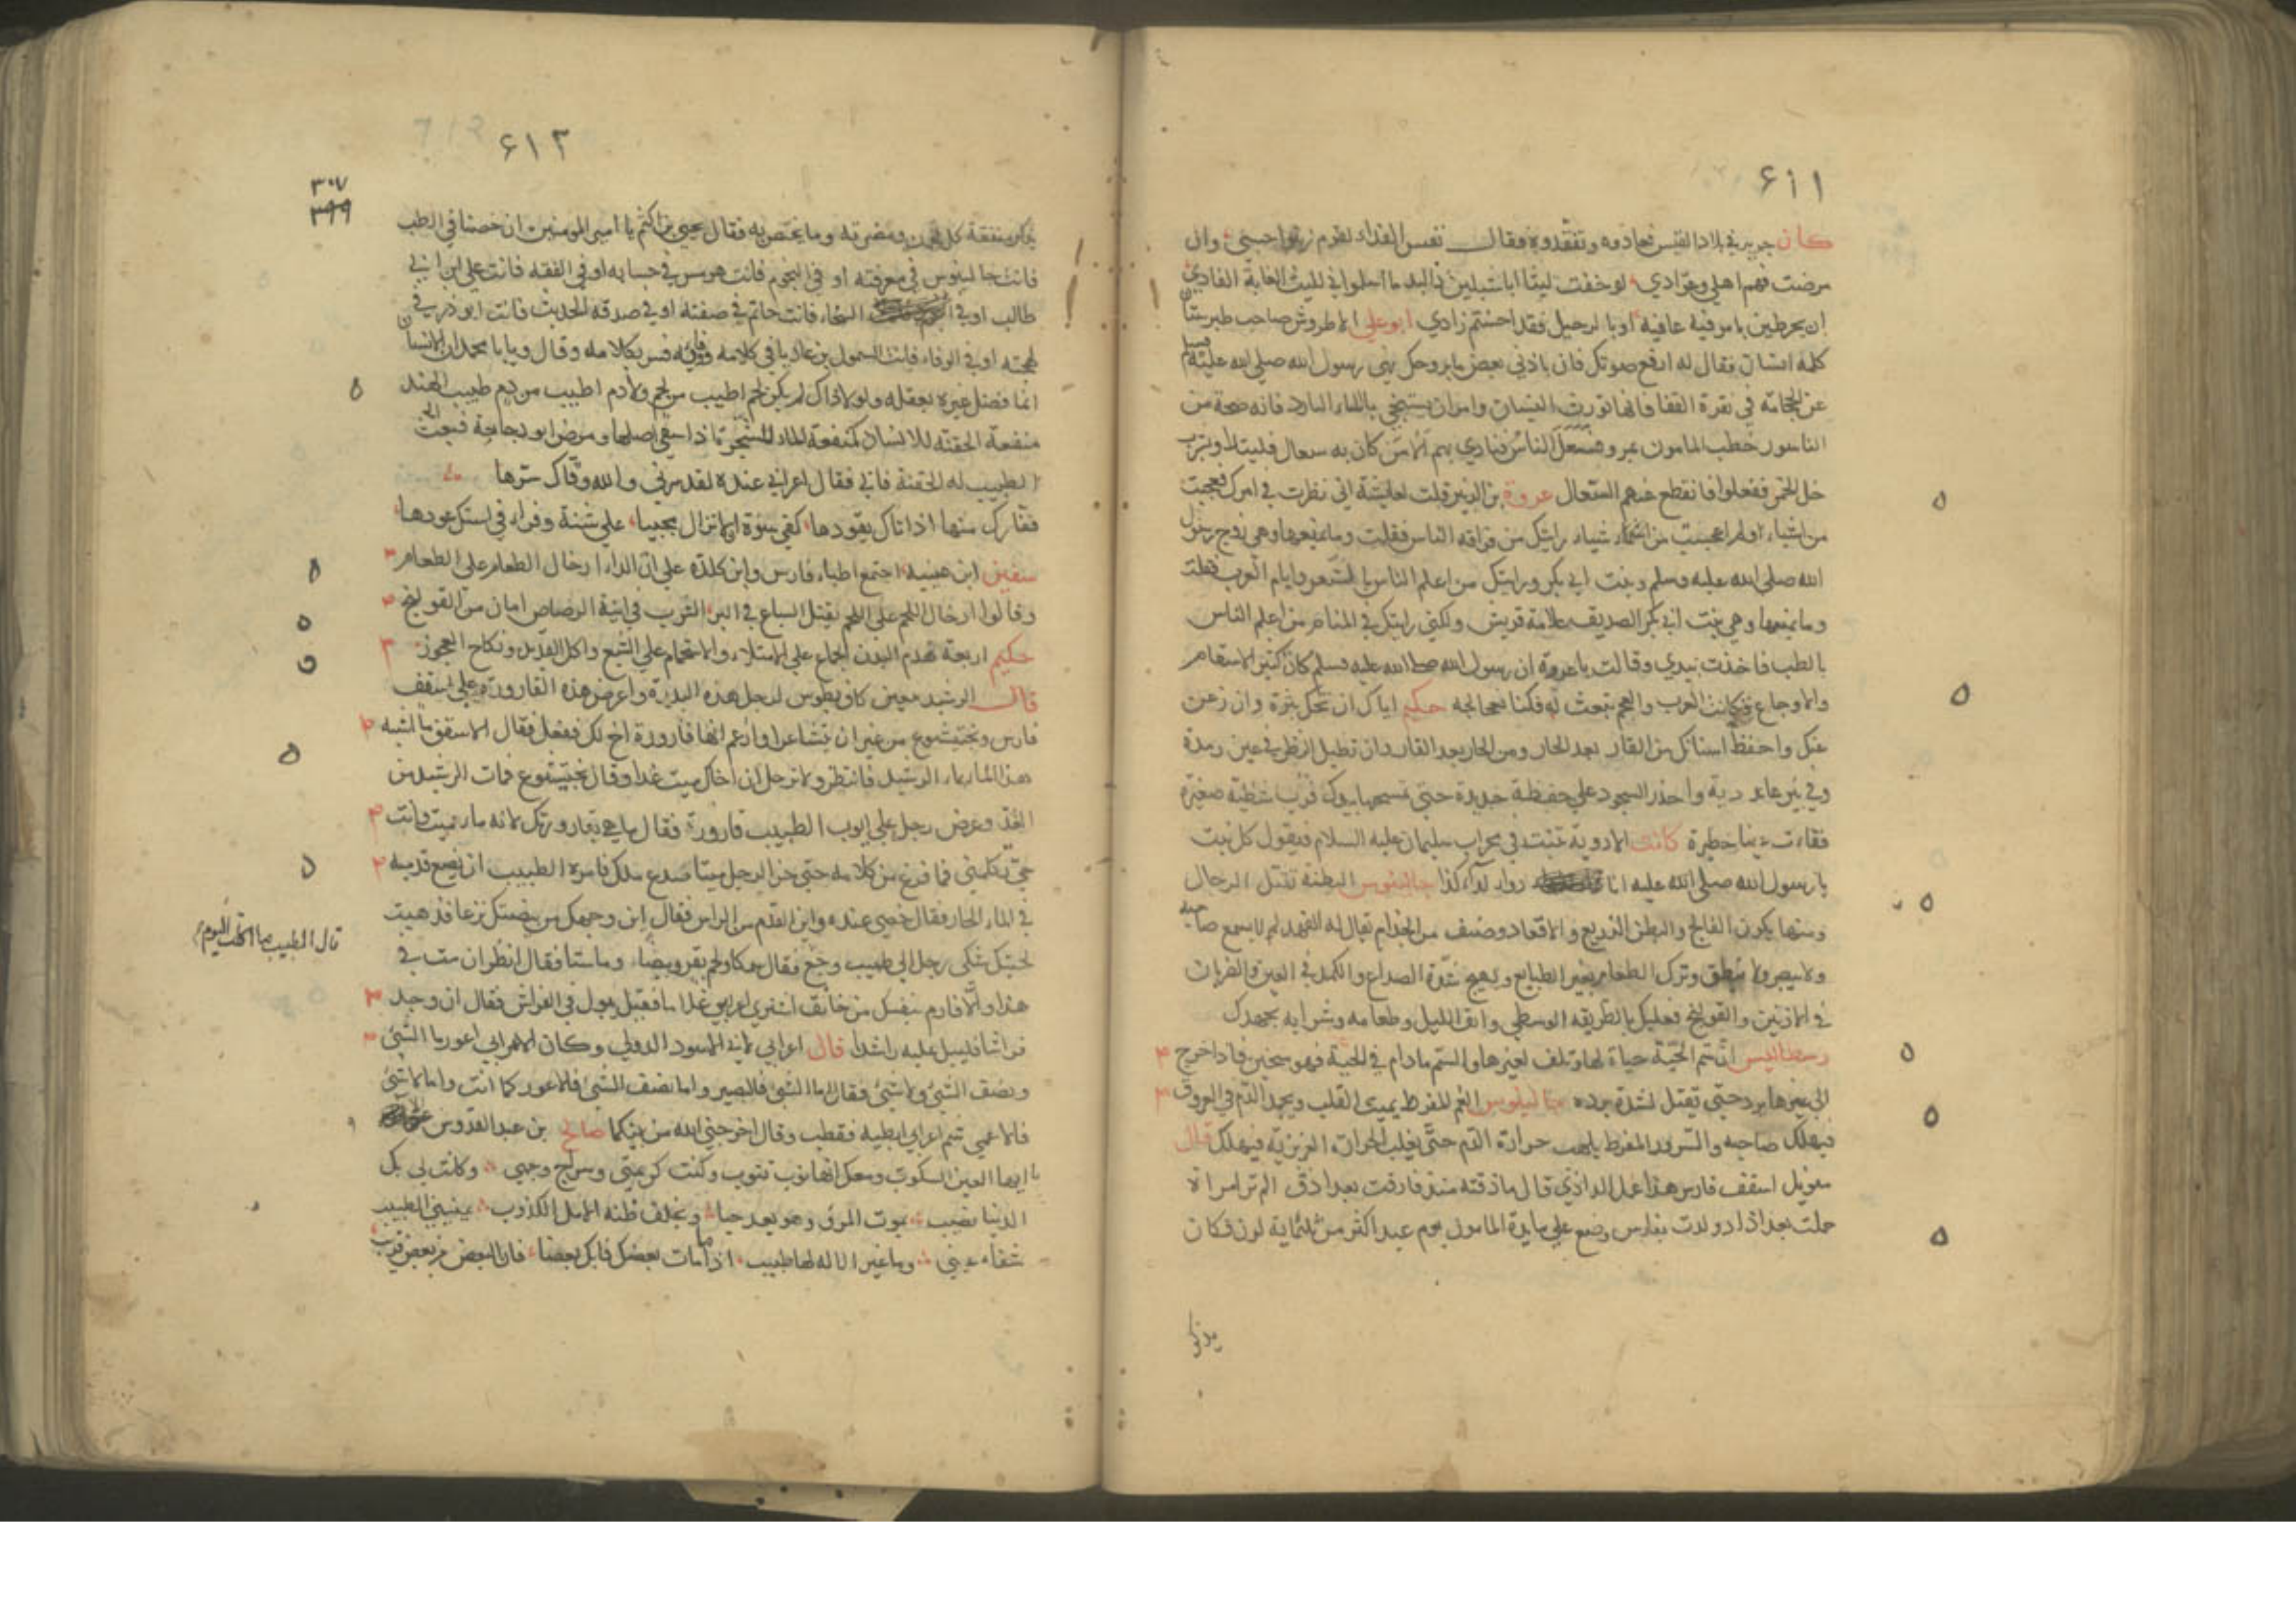 ٤١١
كان جرير في بلاد القيس فعادوه وتفقدوه فقال نفسي الفداء لقوم زينوا حسبي وان
مرضت فهم اهلي وعوادي لو خفت ليثا ابا شبلين ذا لبد ما اسلموني لليث الغابة العادي
ان يجر طير بامر فيه عافية او بالرحيل فقد احسنتم زادي ابو علي الاطروش صاحب طبرستان
كلمه انسان فقال له ارفع صوتك فان باذني بعض ما بروحك نهى رسول الله صلى الله عليه وسلم
عن الحجامة في نقرة القفا فانها تورث النسيان وامر ان يستنجي بالماء البارد فانه صحة من
الناسور خطب المامون بمرو فسعل الناس فنادي بهم الا من كان به سعال فليتداو بشرب
خل الخمر ففعلوا فانقطع عنهم السعال عروة بن الزبير قلت لعايشة اني نظرت في امرك فعجبت
من اشياء ولم اعجب من اشياء رايتك من افقه الناس فقلت وما يمنعها وهي زوج رسول
الله صلى الله عليه وسلم وبنت ابي بكر ورايتك من اعلم الناس بالشعر وايام العرب فقلت
وما يمنعها وهي بنت ابي بكر الصديق علامة قريش ولكني رايتك في المنام من اعلم الناس
بالطب فاخذت بيدي وقالت يا عروة ان رسول الله صلى الله عليه وسلم كان كثير الاسقام
والاوجاع فكانت العرب والعجم تبعث له فكنا نعالجه حكيم اياك ان تحك بثرة وان زعن
عنك واحفظ اسنانك من القار بعد الحار ومن الحار بعد القار وان تطيل النظر في عين رمدة
وفي بئر عادية واحذر السجود على خفضة جديدة حتى تمسحها بيدك فرب شظية صغيرة
فقات عينا خطيرة كانت الادوية تنبت في محراب سليمان عليه السلام فيقول كل نبت
يا رسول الله صلى الله عليه انا دواء لداء كذا جالينوس البطنة تقتل الرجال
ومنها يكون الفالج والبطن الذريع والاقعاد وصنف من الجذام يقال له الفهد لم لا يسمع صاحبه
ولا يبصر ولا ينطق وترك الطعام يغير الطبايع ويهيج شدة الصداع والكمد في العين والضربان
في الاذنين والقولنج فعليك بالطريقه الوسطى واتق الليل وطعامه وشرابه بجهدك
رسطاليس ان سم الحية حياة لها وتلف لغيرها والسم مادام في الحية فهو سخين فاذا خرج
الى غيرها برد حتى تقتل لشدة برده جالينوس الغم المفرط يميت القلب ويجمد الدم في العروق
فيهلك صاحبه والسرور المفرط يلهب حرارة الدم حتى يغلب الحرارة الغريزية فيهلك قال
اسقف فارس هذا غدا الداذي قال ما ذقته منذ فارقت بغداد قال الم تر امراة
حملت ببغداد وولدت بفارس وضع على مايدة المامون يوم عيد اكثر من ثلثماية لون فكان
يذكر
٤١٢
٣٠٧
٣٩٩
يذكر منفعة كل لون ومضرته وما يختص به فقال يحيي بن اكثم يا امير المومنين ان خضنا في الطب
فانت جالينوس في معرفته او في النجوم فانت هرمس في حسابه او في الفقه فانت علي ابن ابي
طالب او في السخاء فانت حاتم في صفته او في صدقه الحديث فانت ابو ذر في
لهجته او في الوفاء فانت السمول بن عاديا في كلامه ووفائه فسر بكلامه وقال ويا با محمد ان الانسان
انما فضل غيره بعقله ولولا ذاك لم يكن لحم اطيب من لحم ولا دم اطيب من دم طبيب الهند
منفعة الحقنه للانسان كمنفعة الماء للشجر اذا سقي اصلها ومرض ابو دجاجة فبعث
الطبيب له الحقنة فابى فقال اعرابي عنده لقد سرني والله وقاك شرها
سفين ابن عيينه اجتمع اطباء فارس وابن كلدة على ان الداء ادخال الطعام على الطعام
وقالوا ادخال اللحم على اللحم يقتل السباع في البر الشرب في انية الرصاص امان من القولنج
حكيم اربعة تهدم البدن الجماع على الامتلاء والاستحمام على الشبع واكل القديد ونكاح العجوز
قال الرشيد حين كان بطوس لرجل هذه البدرة واعرض هذه القارورة على اسقف
فارس وبختيشوع من غير ان تتشاعرا وازعم انها قارورة اخ لك ففعل فقال الاسقف ما اشبه
هذا الماء بماء الرشيد فانتظر ولا ترحل ان اخاك ميت غدا وقال بختيشوع فمات الرشيد من
الغد وعرض رجل على ايوب الطبيب قارورة فقال ما هي بقارورتك لانه ماء ميت وانت
حي تكلمني فما فرغ من كلامه حتى خر الرجل ميتا صدع ملك فامره الطبيب ان يضع قدميه
في الماء الحار فقال خصي عنده واين القدم من الراس فقال اين وجهك من بيضتيك نزعا فذهبت
لحيتك شكى رجل الى طبيب وجع فقال سمكا ولحم بقر وبيضا وماستا فقال انظر ان مت في
هذا والا فارم بنفسك من حالق اشترى اعرابي غلاما فقيل يبول في الفراش فقال ان وجد
فراشا فليبل عليه راشدا قال اعرابي لابي الاسود الدولي وكان الاعرابي اعور ما الشيء
ونصف الشيء ولا شيء فقال اما الشيء فالبصير واما نصف الشيء فالاعور كما انت واما لا شيء
فالاعمى تيم اعرابي ابطيه فقطب وقال اخرجني الله من بينكما صالح بن عبد القدوس
ايها العين السكوب ودمعك انها نوب تنوب وكنت كريمتي وسراج وجهي وكانت لي بك
الدنيا نصيب يموت المرء وهو يعد حيا ويخلف ظنه الامل الكذوب يمنيني الطبيب
شفاء عيني وما غير الاله لها طبيب اذا ما مات بعضك فابك بعضا فان البعض من بعض قريب
قال الطبيب ما اكلت اليوم